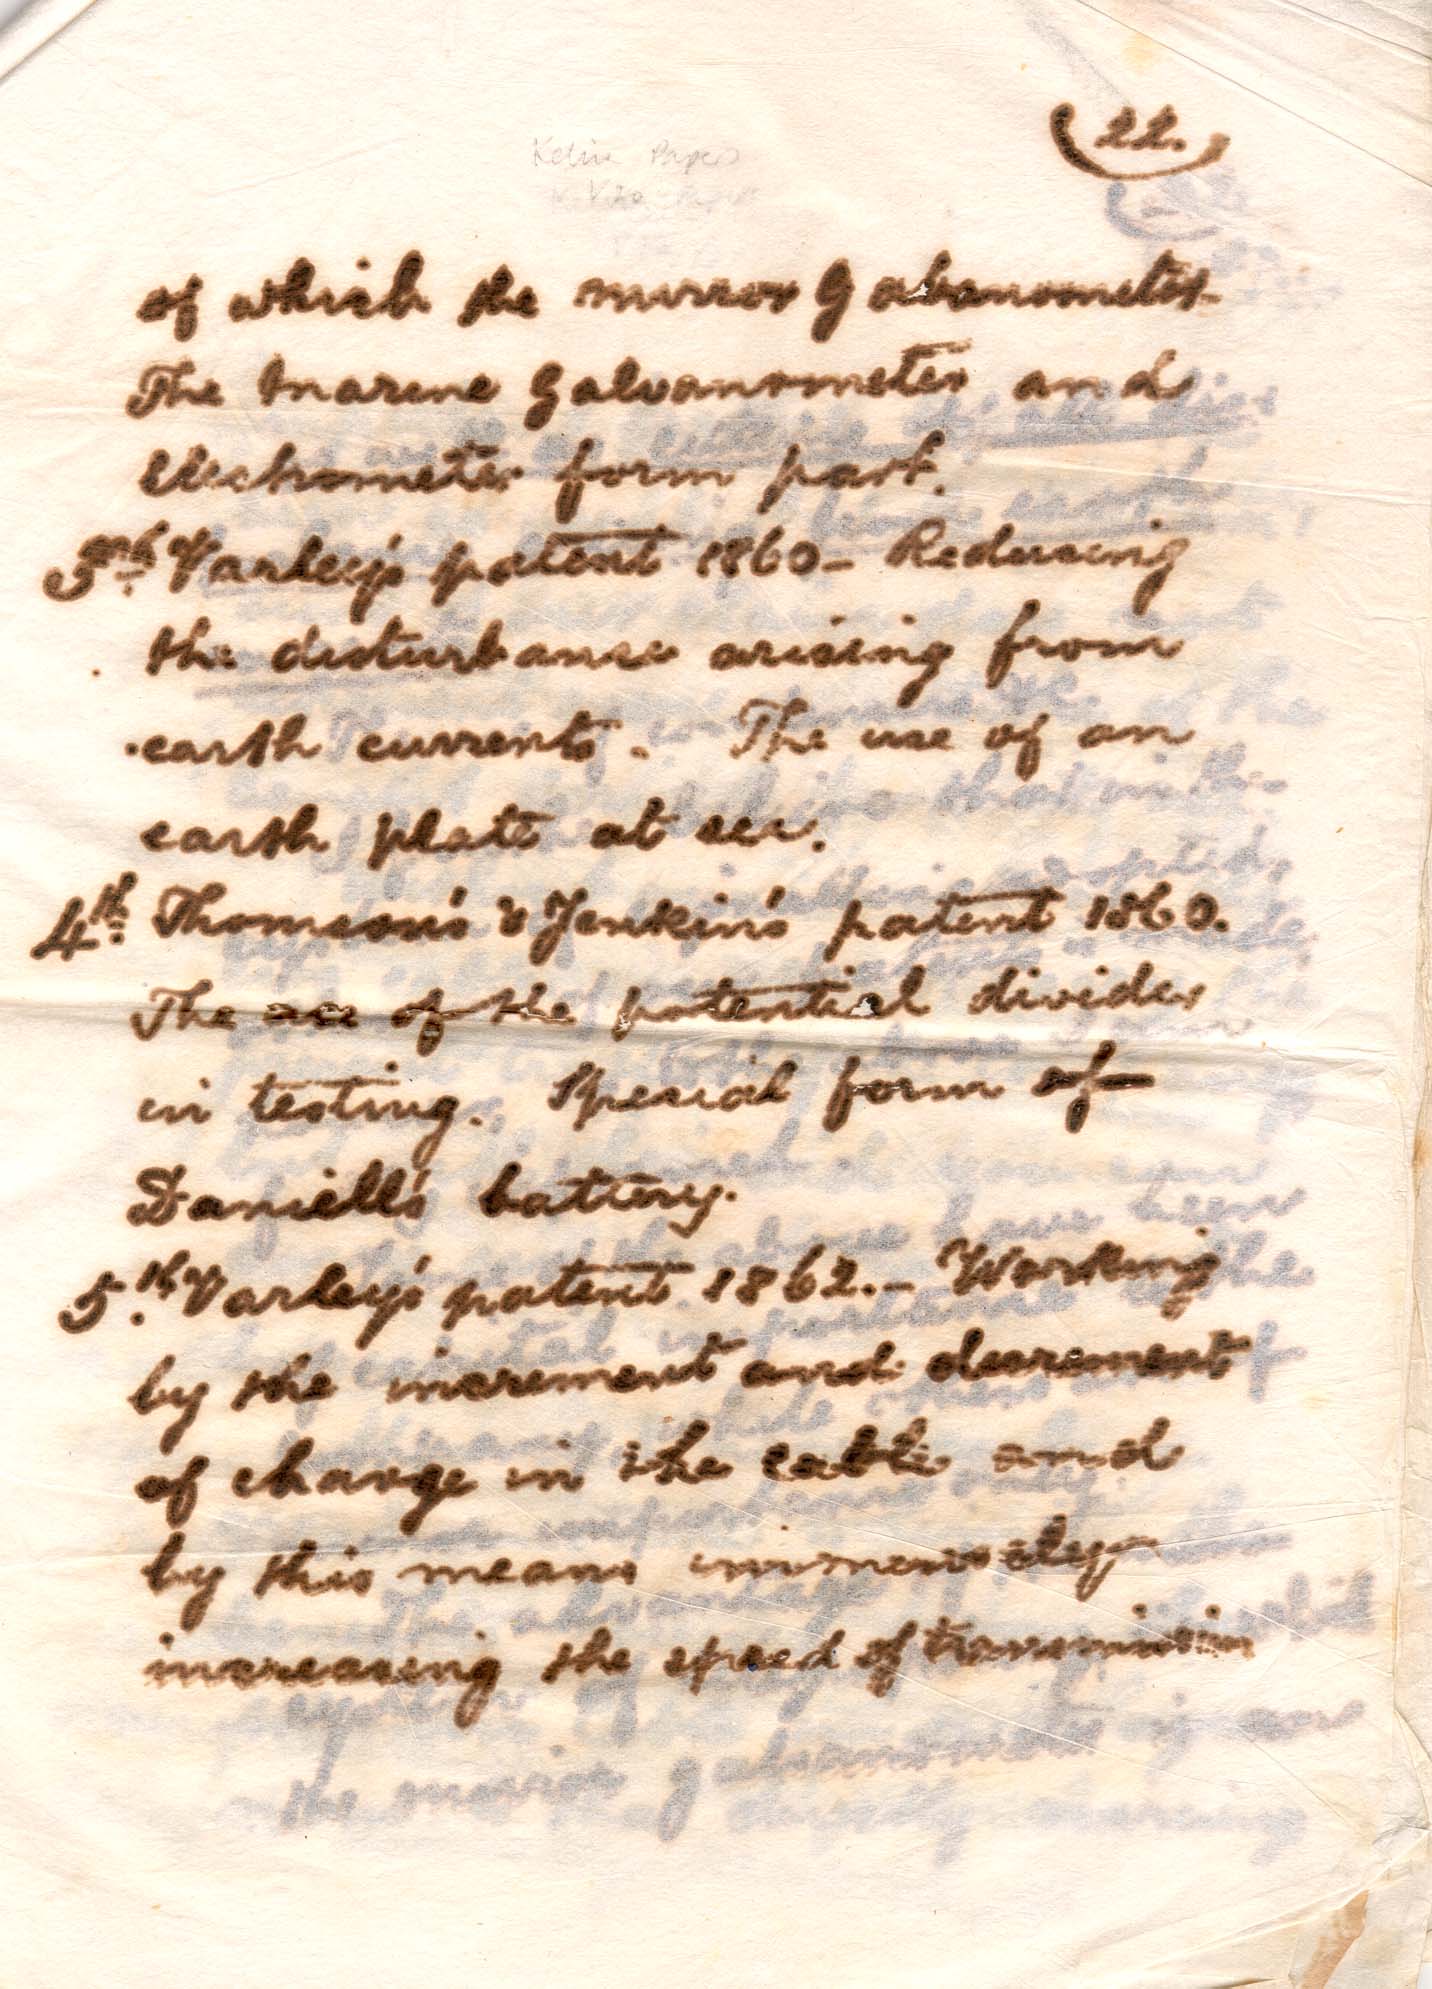 22.
Kelvin Papers
of which the mirror Galvanometer
The Marine Galvanometer and
electrometer form part.
3rd. Varley's patent 1860 - Reducing
the disturbance arising from
earth currents. The use of an
earth plate at sea.
4th. Thomson's & Jenkin's patent 1860.
The use of the potential divider
in testing. Special form of
Daniell's battery.
5.th Varley's patent 1862. - Working
by the increment and decrement
of charge in the cable and
by this means immensely
increasing the speed of transmission